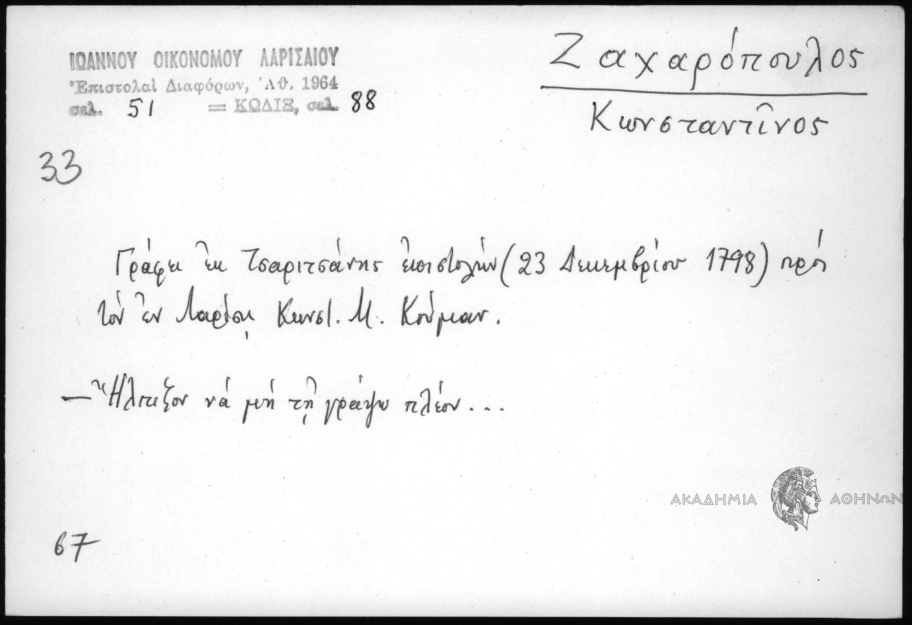 ΙΩΑΝΝΟΥ ΟΙΚΟΝΟΜΟΥ ΛΑΡΙΣΑΙΟΥ
Ἐπιστολαὶ Διαφόρων, Ἀθ. 1964
σελ. 51 = ΚΩΔΙΞ, σελ. 88
Ζαχαρόπουλος
Κωνσταντῖνος
33
Γράφει ἐκ Τσαριτσάνης ἐπιστολὴν (23 Δεκεμβρίου 1798) πρὸς
τὸν ἐν Λαρίσῃ Κωνστ. Μ. Κούμαν.
— Ἤλπιζον νὰ μὴ τῇ γράψω πλέον...
ΑΚΑΔΗΜΙΑ ΑΘΗΝΩΝ
67